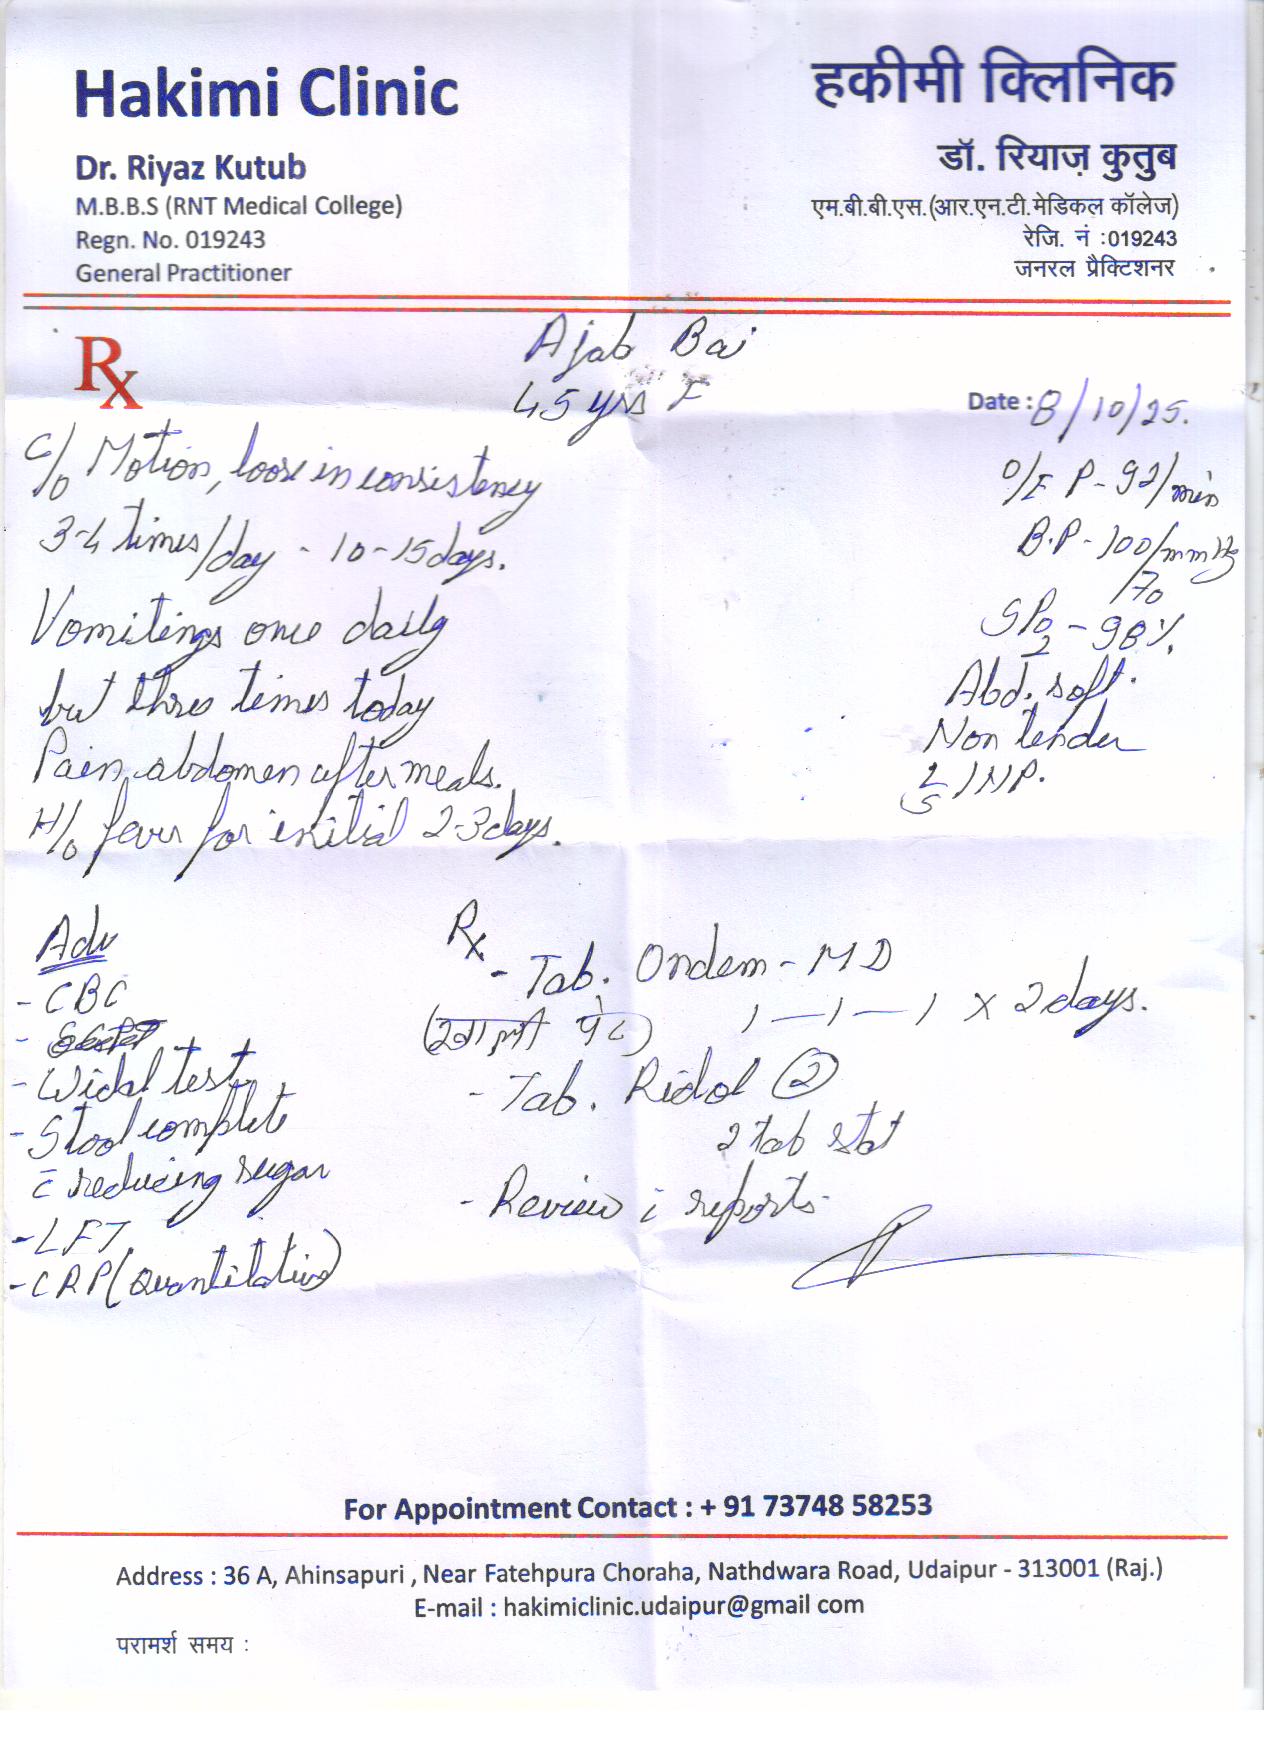 Hakimi Clinic
Dr. Riyaz Kutub
M.B.B.S (RNT Medical College)
Regn. No. 019243
General Practitioner
हकीमी क्लिनिक
डॉ. रियाज़ कुतुब
एम.बी.बी.एस.(आर.एन.टी.मेडिकल कॉलेज)
रेजि. नं :019243
जनरल प्रैक्टिशनर
Rx
Ajab Bai
45 yrs F
Date : 8/10/25.
C/o Motion, loose in consistency
3-4 times/day - 10-15 days.
Vomitings once daily
but three times today
Pain abdomen after meals.
H/o fever for initial 2-3 days.
O/E P - 92/min
B.P - 100/mmHg
/70
SPO2 - 98%.
Abd. soft.
Non tender
L/S NP.
Adv
- CBC
- Widal test
- Stool complete
c̄ reducing sugar
- LFT
- CRP (Quantitative)
Rx
- Tab. Ondem - MD
(खाली पेट) 1 — 1 — 1 x 2 days.
- Tab. Ridol ②
2 tab stat
- Review c̄ reports.
For Appointment Contact : + 91 73748 58253
Address : 36 A, Ahinsapuri , Near Fatehpura Choraha, Nathdwara Road, Udaipur - 313001 (Raj.)
E-mail : hakimiclinic.udaipur@gmail com
परामर्श समय :